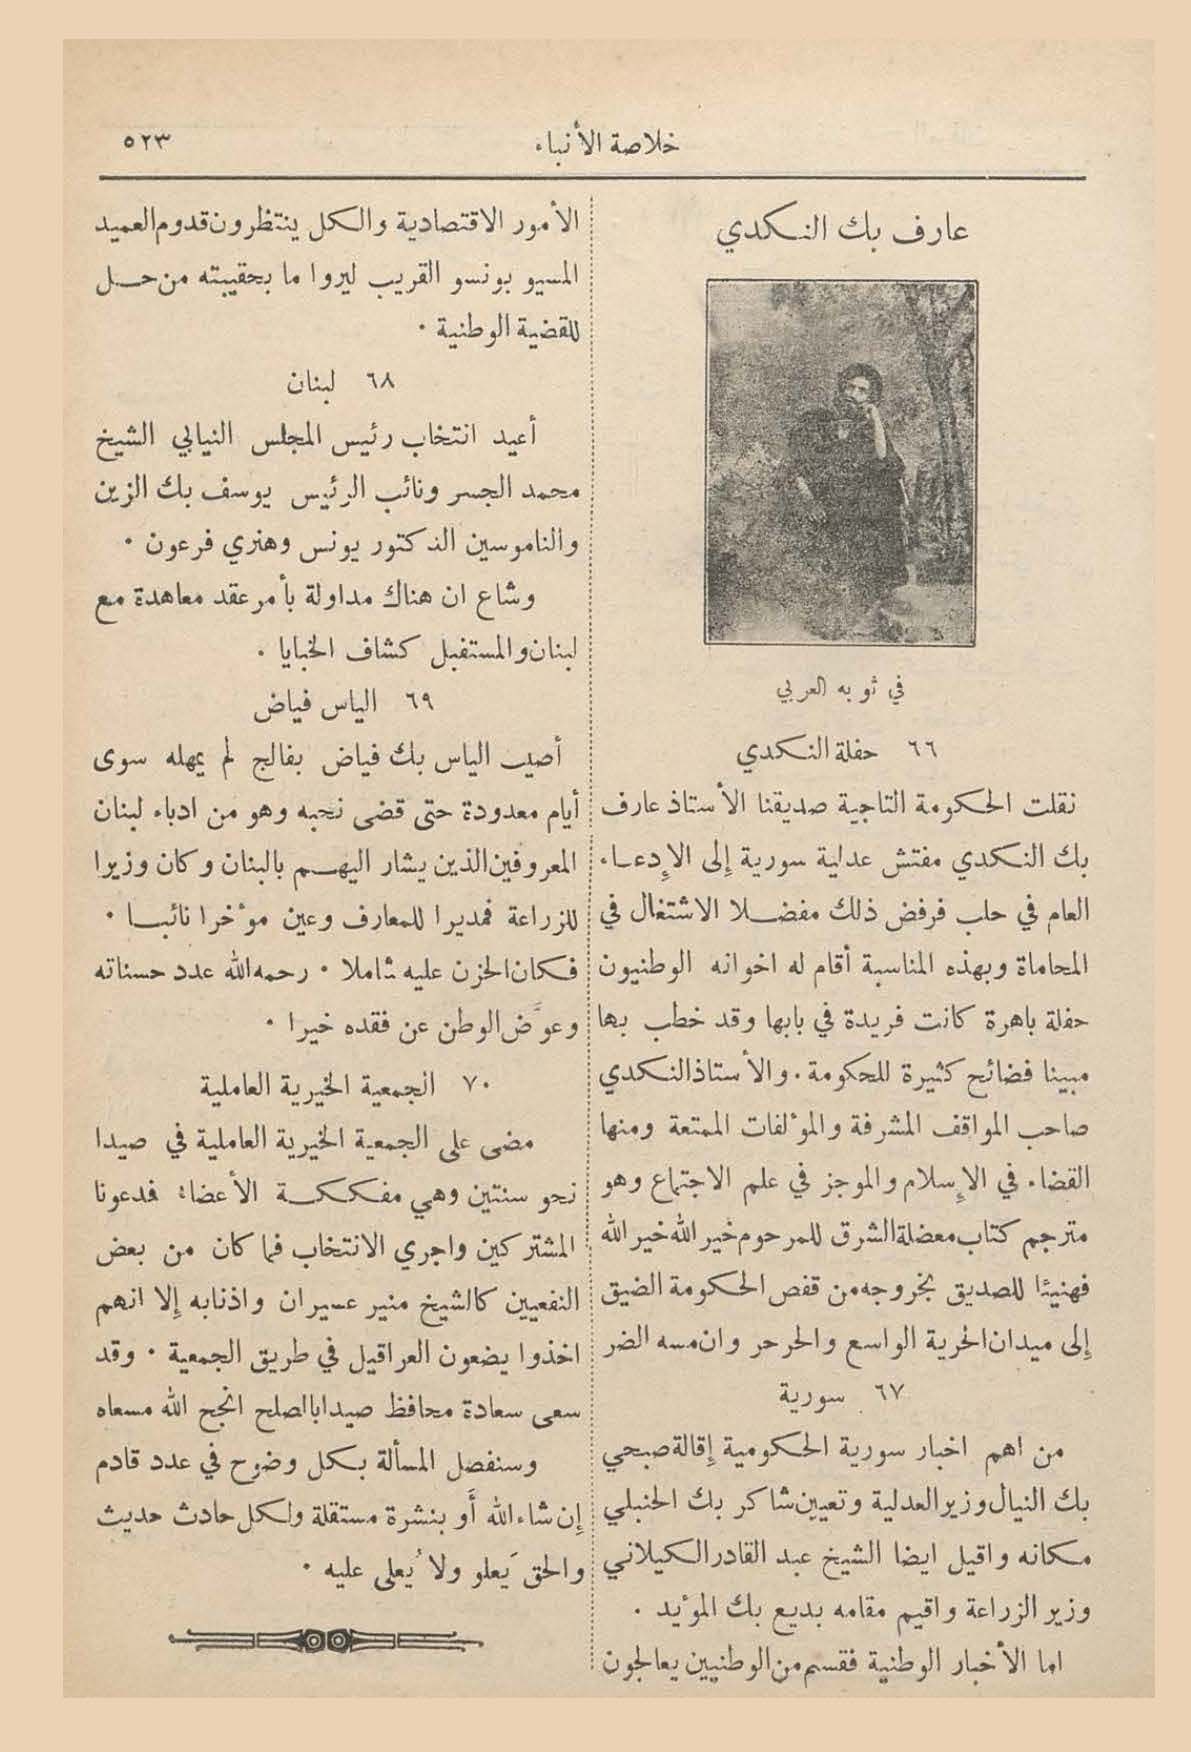 خلاصة الأنباء
٥٢٣
عارف بك النكدي
في ثوبه العربي
٦٦ حفلة النكدي
نقلت الحكومة التاجية صديقنا الأستاذ عارف
بك النكدي مفتش عدلية سورية إلى الإدعاء
العام في حلب فرفض ذلك مفضلا الاشتغال في
المحاماة وبهذه المناسبة أقام له اخوانه الوطنيون
حفلة باهرة كانت فريدة في بابها وقد خطب بها
مبينا فضائح كثيرة للحكومة . والأستاذ النكدي
صاحب المواقف المشرفة والمؤلفات الممتعة ومنها
القضاء في الإسلام والموجز في علم الاجتماع وهو
مترجم كتاب معضلة الشرق للمرحوم خير الله خير الله
فهنيئا للصديق بخروجه من قفص الحكومة الضيق
إلى ميدان الحرية الواسع والحر حر وان مسه الضر
٦٧ سورية
من اهم اخبار سورية الحكومية إقالة صبحي
بك النيال وزير العدلية وتعيين شاكر بك الحنبلي
مكانه واقيل ايضا الشيخ عبد القادر الكيلاني
وزير الزراعة واقيم مقامه بديع بك المؤيد .
اما الأخبار الوطنية فقسم من الوطنيين يعالجون
الأمور الاقتصادية والكل ينتظرون قدوم العميد
المسيو بونسو القريب ليروا ما بحقيبته من حل
للقضية الوطنية .
٦٨ لبنان
أعيد انتخاب رئيس المجلس النيابي الشيخ
محمد الجسر ونائب الرئيس يوسف بك الزين
والناموسين الدكتور يونس وهنري فرعون .
وشاع ان هناك مداولة بأمر عقد معاهدة مع
لبنان والمستقبل كشاف الخبايا .
٦٩ الياس فياض
أصيب الياس بك فياض بفالج لم يمهله سوى
أيام معدودة حتى قضى نحبه وهو من ادباء لبنان
المعروفين الذين يشار اليهم بالبنان وكان وزيرا
للزراعة فمديرا للمعارف وعين مؤخرا نائبا .
فكان الحزن عليه شاملا . رحمه الله عدد حسناته
وعوَّض الوطن عن فقده خيرا .
٧٠ الجمعية الخيرية العاملية
مضى على الجمعية الخيرية العاملية في صيدا
نحو سنتين وهي مفككة الأعضاء فدعونا
المشتركين واجري الانتخاب فما كان من بعض
النفعيين كالشيخ منير عسيران واذنابه إلا انهم
اخذوا يضعون العراقيل في طريق الجمعية . وقد
سعى سعادة محافظ صيدا بالصلح انجح الله مسعاه
وسنفصل المسألة بكل وضوح في عدد قادم
إن شاء الله أَو بنشرة مستقلة ولكل حادث حديث
والحق يَعلو ولا يُعلى عليه .